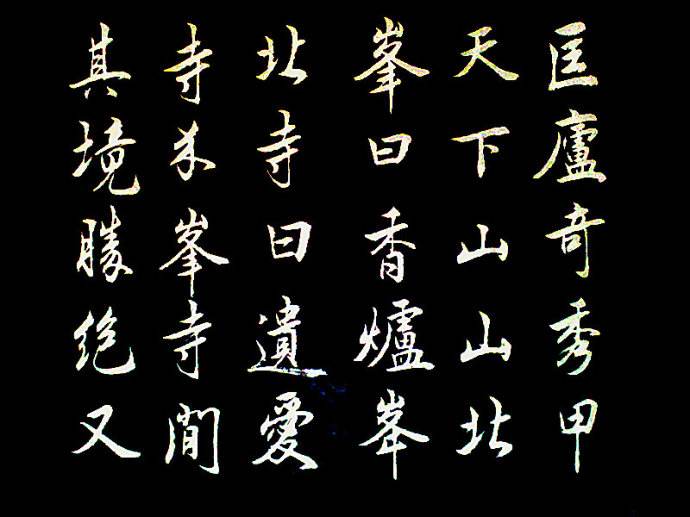 匡廬奇秀甲
天下山山北
峯曰香爐峯
北寺曰遺愛
寺介峯寺間
其境勝絶又